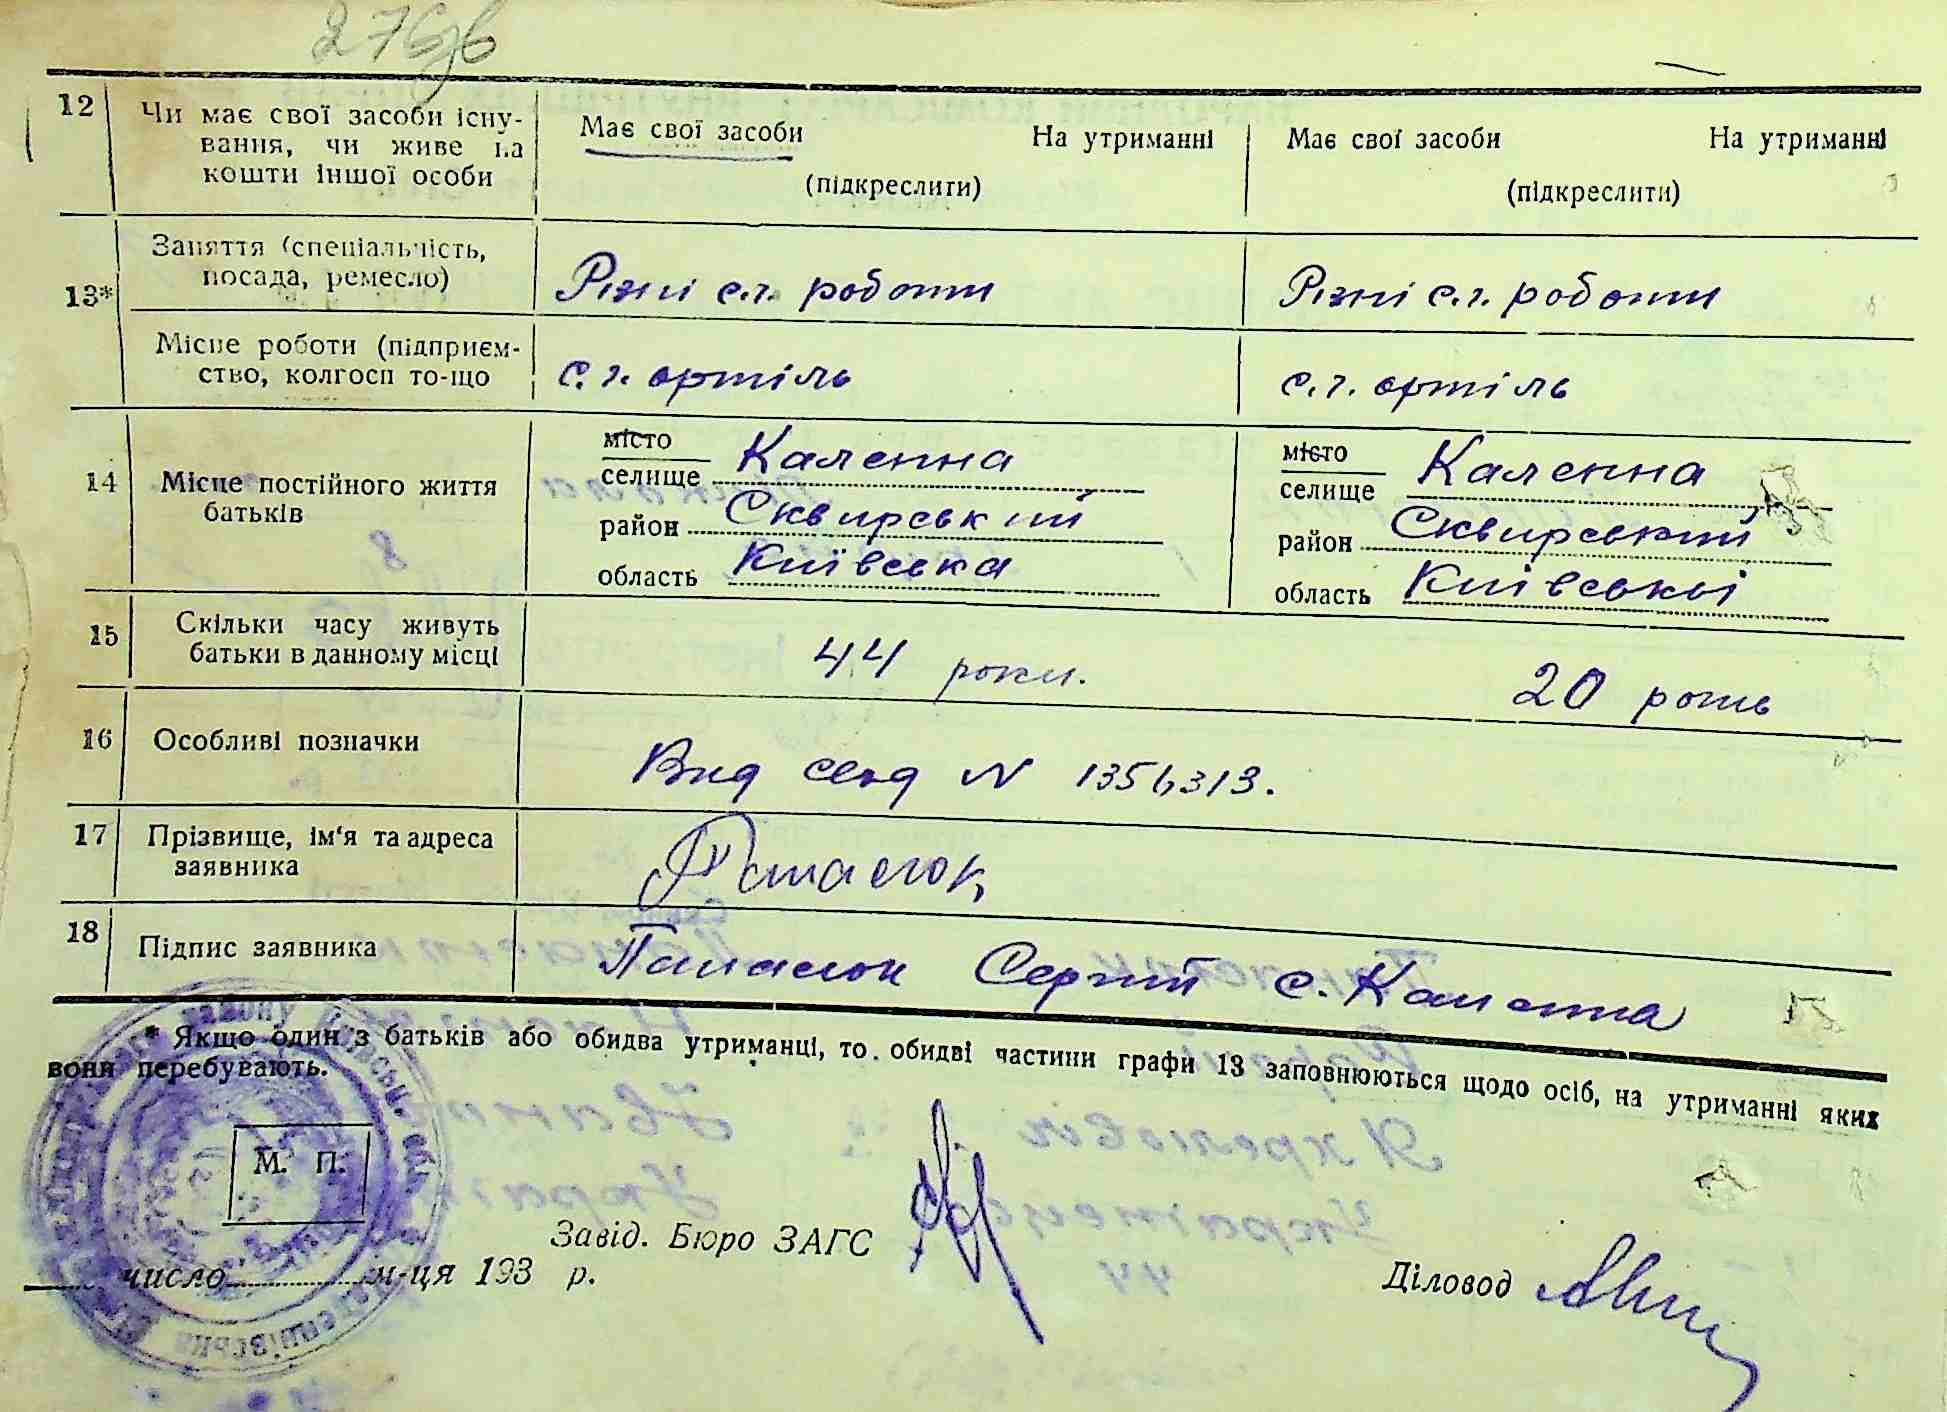 12 Чи має свої засоби існу-
вання, чи живе на
кошти іншої особи
Має свої засоби На утриманні
(підкреслиги)
Має свої засоби На утриманні
(підкреслити)
13*
Заняття (спеціальність,
посада, ремесло)
Різні с.г. роботи
Різні с.г. роботи
Місце роботи (підприєм-
ство, колгосп то-що
с.г. артіль
с.г. артіль
14 Місце постійного життя
батьків
місто
селище Каленна
район Сквирський
область Київська
місто
селище Каленна
район Сквирський
область Київські
15 Скільки часу живуть
батьки в данному місці
44 роки.
20 років
16 Особливі позначки
Вид N
17 Прізвище, ім'я та адреса
заявника
18 Підпис заявника
Сергій с. Каленна
* Якщо один з батьків або обидва утриманці, то обидві частини графи 13 заповнюються щодо осіб, на утриманні яких
вони перебувають.
М. П.
Завід. Бюро ЗАГС
число м-ця 193 р.
Діловод